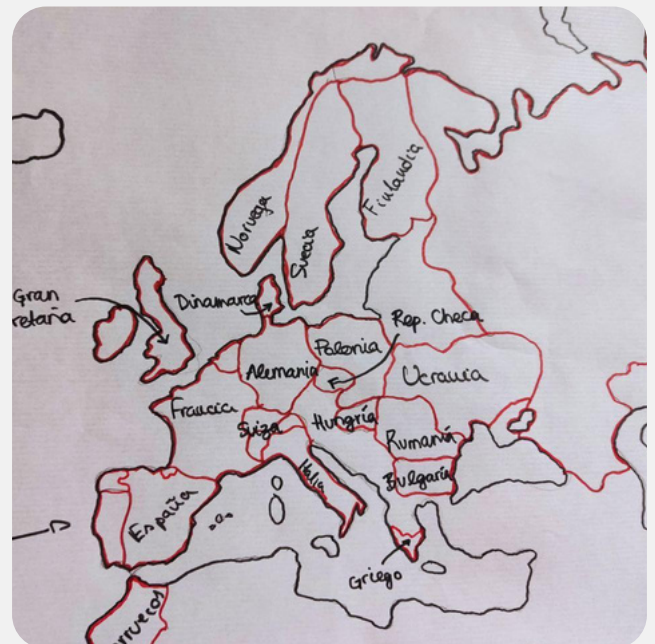 Noruega
Suecia
Finlandia
Gran
retaña
Dinamarca
Rep. Checa
Polonia
Alemania
Ucrania
Francia
Suiza
Hungría
Rumanía
Italia
Bulgaria
España
Griego
rruecos